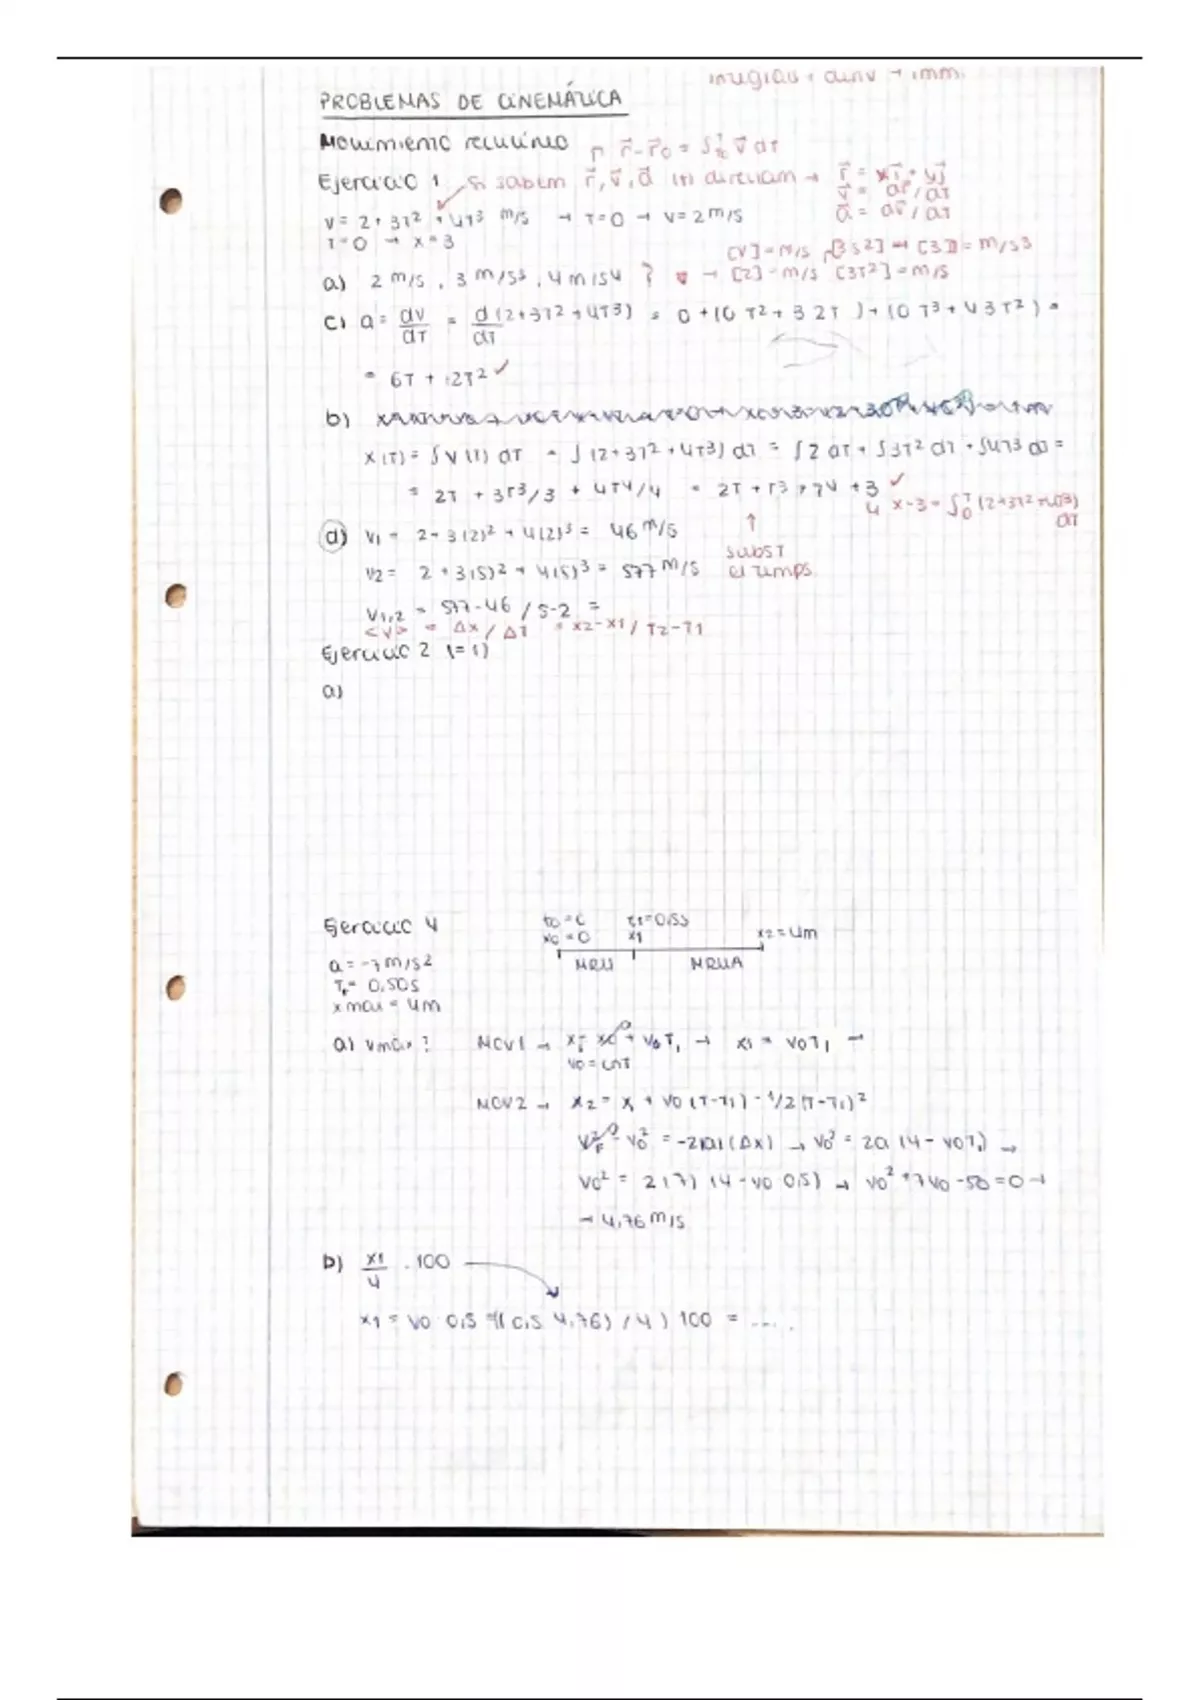 integrau + deriv → imm.
PROBLEMAS DE CINEMÁTICA
Movimiento rectilíneo r⃗-r⃗0 = ∫ v⃗ dt
Ejercicio 1 Si sabem r⃗, v⃗, a⃗ (t) derivam → r⃗ = xi⃗ + yj⃗
v⃗ = dr⃗/dt
a⃗ = dv⃗/dt
v = 2 + 3t² + 4t³ m/s → t=0 → v = 2 m/s
t=0 → x=3
[v] = m/s [3s²] → [3] = m/s³
a) 2 m/s, 3 m/s³, 4 m/s4 ? → [2] = m/s [3t²] = m/s
c) a = dv/dt = d(2+3t²+4t³)/dt = 0 + (0 t² + 3 2t) + (0 t³ + 4 3t²) =
= 6t + 12t² ✓
b)
x(t) = ∫v(t) dt = ∫(2+3t²+4t³) dt = ∫2 dt + ∫3t² dt + ∫4t3 dt =
= 2t + 3t³/3 + 4t4/4 = 2t + t3 + t4 + 3 ✓
x-3 = ∫0t (2+3t²+4t3) dt
↑ subst el temps
d) v1 = 2 + 3(2)² + 4(2)³ = 46 m/s
v2 = 2 + 3(5)² + 4(5)³ = 577 m/s
v1,2 = 577-46 / 5-2 =
<v> = Δx/Δt = x2-x1 / t2-t1
Ejercicio 2 (=1)
a)
Ejercicio 4
t0=0 t1=0,5s
x0=0 x1 x2=4m
MRU MRUA
a = -7 m/s²
= 0,50s
x max = 4m
a) vmàx? MOV1 → x = x0 + v0 t1 → x1 = v0t1 →
v0 = cnt
MOV2 → x2 = x1 + v0(t-t1) - 1/2(t-t1)²
vF² - v0² = -2|a|(Δx) → v0² = 2a(4 - v0t1) →
v0² = 2(7)(4 - v0 0,5) → v0² + 7v0 - 56 = 0 →
→ 4,76 m/s
b) x1/4 · 100
x1 = v0 0,5 = ((0,5 4,76)/4) 100 = ....